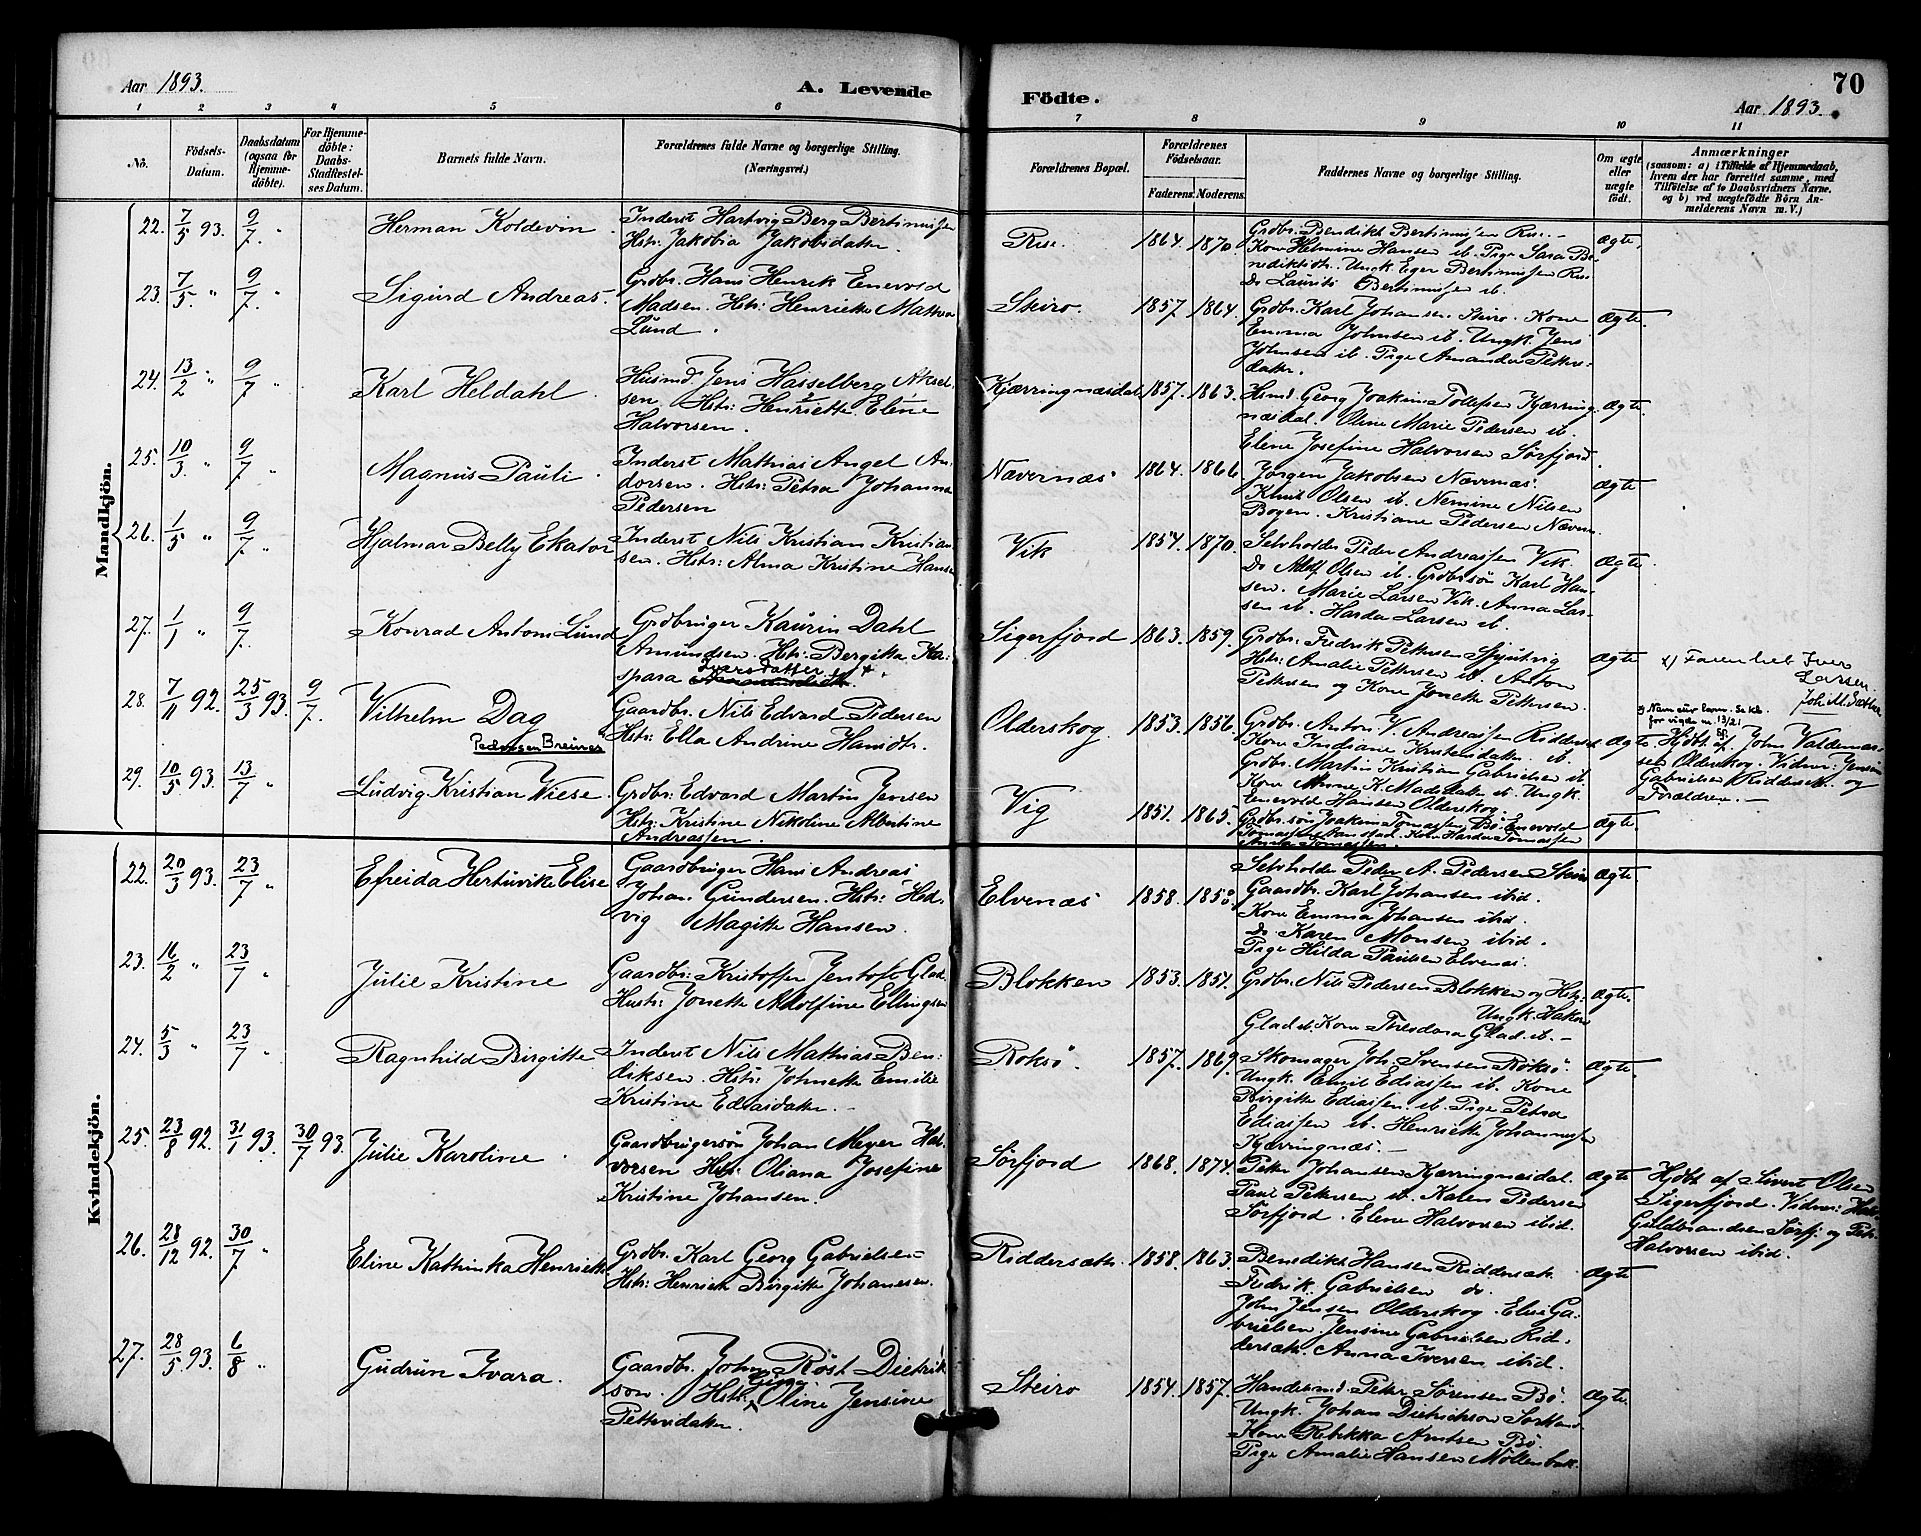 Aar 1893.
A. Levende
Födte.
70
Aar 1893.
1 2 3 4 5 6 7 8 9 10 11
No.
Födsels-Datum.
Daabsdatum (ogsaa for Hjemmedöbte).
For Hjemmedöbte: Daabs-Stadfæstelses Datum.
Barnets fulde Navn.
Forældrenes fulde Navne og borgerlige Stilling.
(Næringsvei.)
Forældrenes Bopæl.
Forældrenes Födselsaar.
Faderens. Moderens.
Faddernes Navne og borgerlige Stilling.
Om ægte eller uægte födt.
Anmærkninger
(saasom: a) i Tilfælde af Hjemmedaab, hvem der har forrettet samme, med Tilföielse af to Daabsvidners Navne, og b) ved uægtefödte Börn Anmelderens Navn m. V.)
Mandkjön.
22. 7/5 93. 9/7. "
Herman Koldevin
Inderst Hartvig Berg Bertinussen
Hstr: Jakobia Jakobsdatter.
Rise.
1864. 1870.
Grdbr. Bendikt Bertinussen Rise.
Kone Helmine Hansen ib. Pige Sara Be-
nediktsdtr. Ungk. Eger Bertinussen Rise
Do Laurits Bertinussen ib.
Ægte.
23. 7/5 " 9/7. "
Sigurd Andreas.
Grdbr. Hans Henrik Enevold
Madsen. Hstr: Henriette Mathea
Lund.
Steiro.
1857. 1864.
Grdbr. Karl Johansen Steiro. Kone
Emma Johnsen ib. Ungk. Jens
Johnsen ib. Pige Amanda Petters-
datter.
Ægte.
24. 13/2 " 9/7 "
Karl Heldahl
Husmd. Jens Hasselberg Aksel-
sen. Hstr: Henriette Eline
Halvorsen.
Kjærringnæsdal
1857. 1863.
Hsmd. Georg Joakim Tollefsen Kjærring-
næsdal. Oline Marie Pedersen ib.
Elene Josefine Halvorsen Sörfjord.
Ægte
25. 10/3 " 9/7 "
Magnus Pauli
Inderst Mathias Angel An-
dorsen. Hstr: Petra Johanna
Pedersen
Nævernæs
1864. 1866.
Jörgen Jakobsen Nævernæs.
Knut Olsen ib. Nemine Nilsen
Bogen. Kristiane Pedersen Nævern.
Ægte
26. 1/5 " 9/7 "
Hjalmar Belly Ekator
Inderst Nils Kristian Kristian-
sen. Hstr: Alma Kristine Hansen
Vik
1854. 1870.
Selvholder Peder Andreassen Vik.
Do Adolf Olsen ib. Grdbrsön Karl Han-
sen. Marie Larsen Vik. Anna Lar-
sen ib. Harda Larsen ib.
Ægte.
27. 1/1 " 9/7.
Konrad Antoni Lund
Grdbruger Kaurin Dahl
Amundsen. Hstr: Bergitte Ka-
spara Iversdatter x
Sigerfjord
1863. 1859.
Grdbr. Fredrik Pettersen
Hstr: Amalie Pettersen ib. Anton
Pettersen og Kone Jonette Pettersen.
Ægte
x) Faren het Iver
Larsen.
28. 7/11 92. 25/3 93. 9/7.
Vilhelm Dag
Pedersen Breines
Gaardbr. Nils Edvard Pedersen
Hstr: Ella Andrine Hansdtr.
Olderskog.
1853. 1856.
Grdbr. Anton V. Andreassen Riddersæt
Kone Indiane Kristensdatter ib.
Grdbr. Martin Kristian Gabrielsen ib
Kone Minne K. Madsdatter ib. Ungk.
Enevold Hansen Olderskog.
Ægte
Hjdbt. af John Valdemar-
sen Olderskog. Vidner: Jensine
Gabrielsen Riddersæt og
Forældre.
29. 10/5 93. 13/7 "
Ludvig Kristian Wiese.
Grdbr: Edvard Martin Jensen
Hstr: Kristine Nikoline Albertine
Andreassen.
Vig
1851. 1865.
Grdbr.sön Joakim Tomassen Bö. Enevold
Tomassen
Anna Tomassen.
Ægte.
Kvindekjön.
22. 20/3 93. 23/7 "
Efreida Hertuvike Elise
Gaardbruger Hans Andreas
Johan Gundersen. Hstr: Hed-
vig Magitte Hansen.
Elvenæs
1858.
Selvholder Peder A. Pedersen Steiro
Gaardbr. Karl Johansen ibid.
Kone Emma Johansen ibid.
Do. Karen Monsen ibid.
Pige Hilda Paulsen Elvenæs.
Ægte.
23. 16/2 " 23/7 "
Julie Kristine
Gaardbr: Kristoffer Jentoft Glad.
Hustr: Jonette Adolfine Ellingsen
Blokken
1853. 1851.
Grdbr. Nils Pedersen Blokken og Hstr.
Ungk. Hakon
Glad ib. Kone Theodora Glad ib.
Ægte.
24. 5/3 " 23/7 "
Ragnhild Birgitte
Inderst Nils Mathias Ben-
diksen. Hstr: Johnette Emilie
Kristine Ediasdatter.
Roksö.
1857. 1869.
Skomager Joh. Svensen Roksö.
Ungk. Emil Ediassen ib. Kone
Birgitte Ediassen ib. Pige Petra
Ediassen ib. Henriette Johannessen
Kjærringnæs.
Ægte.
25. 23/8 92. 31/1 93. 30/7 93.
Julie Karoline
Gaardbrugersön Johan Meyer Hal-
vorsen Hstr: Oliana Josefine
Kristine Johansen.
Sörfjord
1868. 1874.
Petter Johansen Kjærringnæsdal.
Paul Pettersen ib. Kalen Pedersen
Sörfjord. Elene Halvorsen ibid.
Ægte
Hjdbt af Sivert Olsen
Sigerfjord. Vidner:
Guldbrandsen Sörfj. og Petr.
Halvorsen ibid.
26. 28/12 92. 30/7 "
Eline Kathinka Henriette
Grdbr. Karl Georg Gabrielsen
Hstr: Henriette Birgitte Johansen.
Riddersæter.
1858. 1863.
Bendikt Hansen Riddersæt.
Fredrik Gabrielsen do.
John Jensen Olderskog. Else Ga-
brielsen Jensine Gabrielsen Rid-
dersæt. Anna Iversen ibid.
Ægte
27. 28/5 93. 6/8 "
Gudrun Ivara.
Gaardbr. John Röst Dietrik-
son. Hstr: Gina Oline Jensine
Pettersdatter.
Steiro
1854. 1857.
Handelsmd. Peter Sörensen Bö.
Ungk. Johan Dietrichson Sortland
Kone Rebekka Arntsen Bö.
Pige Amalie Hansen Möllenbak.
Ægte.